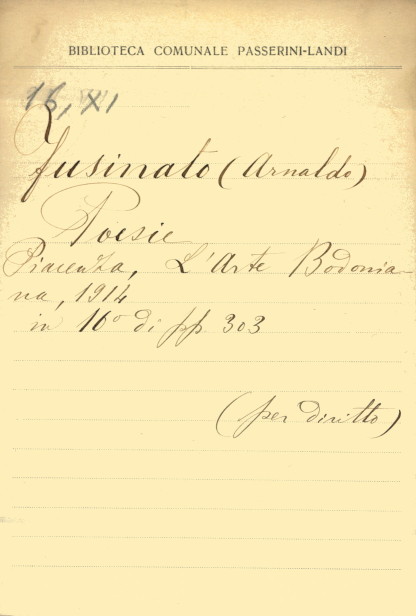 BIBLIOTECA COMUNALE PASSERINI-LANDI
16, XI
Fusinato (Arnaldo)
Poesie
Piacenza, L'Arte Bodonia-
na, 1914
in 16° di pp 303
(per diritto)